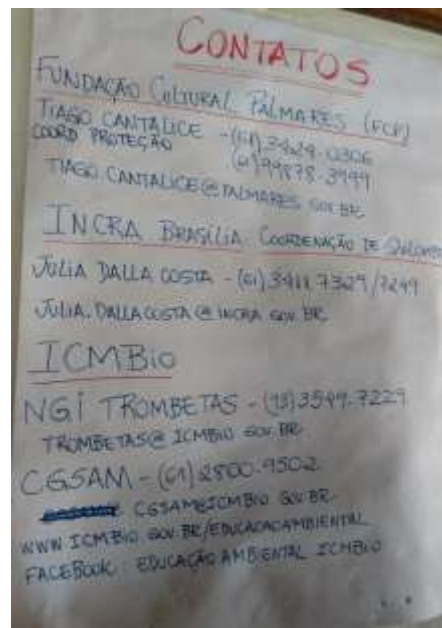 CONTATOS
FUNDAÇÃO CULTURAL PALMARES (FCP)
TIAGO CANTALICE - (61) 3424-0306
COORD PROTEÇÃO (61) 99878-3999
TIAGO.CANTALICE@PALMARES.GOV.BR
INCRA BRASÍLIA COORDENAÇÃO DE
JULIA DALLA COSTA - (61) 3411.7329/7249
JULIA.DALLACOSTA@INCRA.GOV.BR
ICMBIO
NGI TROMBETAS - (93) 3549.7229
TROMBETAS@ICMBIO.GOV.BR
CGSAM - (61) 2800.9502
CGSAM@ICMBIO.GOV.BR
WWW.ICMBIO.GOV.BR/EDUCACAOAMBIENTAL
FACEBOOK: EDUCAÇÃO AMBIENTAL ICMBIO